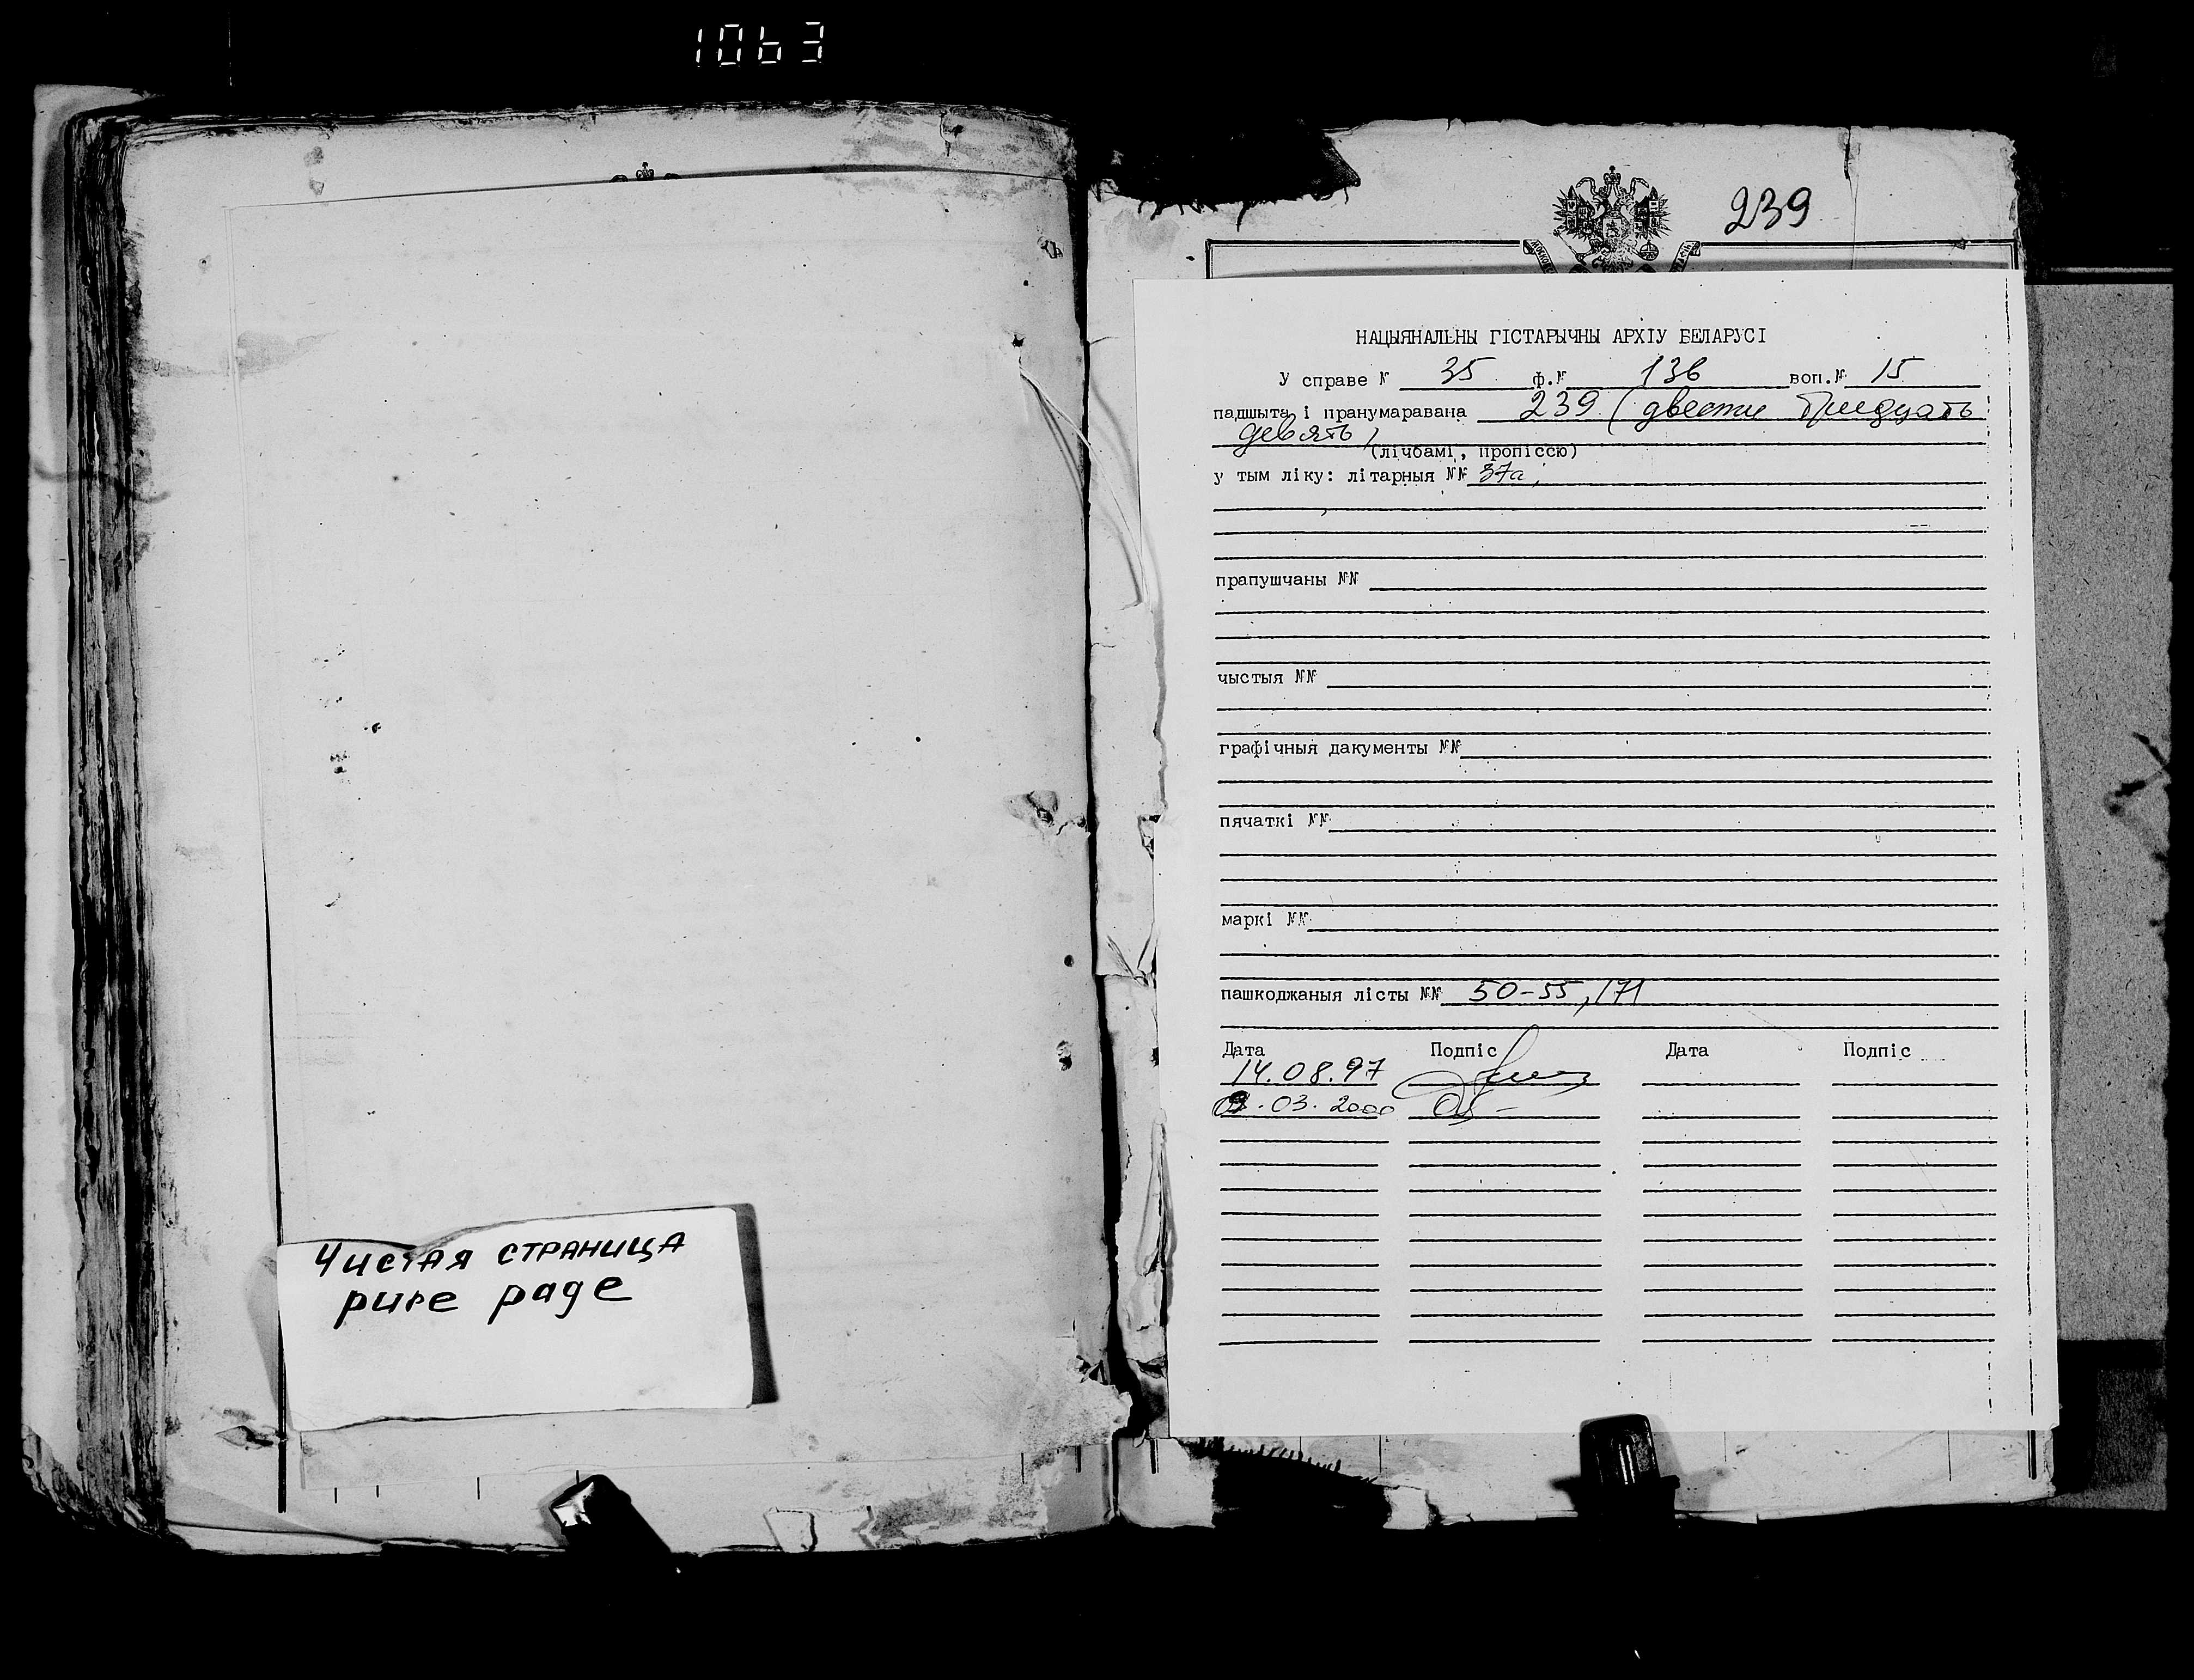 1063
239
НАЦЫЯНАЛЬНЫ ГІСТАРЫЧНЫ АРХІУ БЕЛАРУСІ
У справе № 35 ф.№ 136 воп.№ 15
падшыта і пранумаравана 239 (двести тридцать
девять)
(лічбамі, пропіссю)
у тым ліку: літарныя №№ 37а,
прапушчаны №№
чыстыя №№
графічныя дакументы №№
пячаткі №№
маркі №№
пашкоджаныя лісты №№ 50-55, 171
Дата Подпіс Дата Подпіс
14.08.97
.03.2000
Чистая страница
pure page